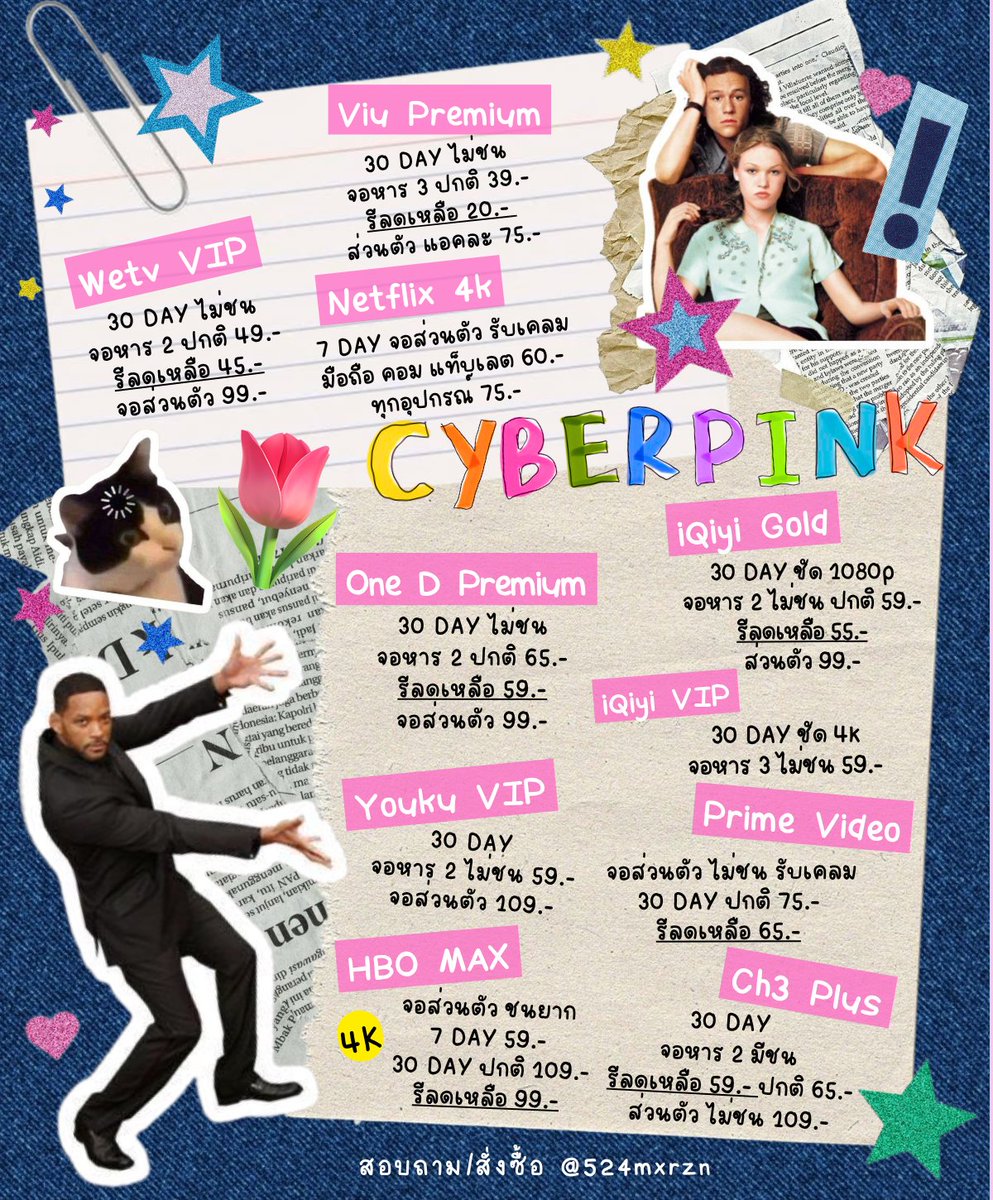 Viu Premium
30 DAY ไม่ชน
จอหาร 3 ปกติ 39.-
รีลดเหลือ 20.-
ส่วนตัว แอคละ 75.-
Wetv VIP
30 DAY ไม่ชน
จอหาร 2 ปกติ 49.-
รีลดเหลือ 45.-
จอสวนตัว 99.-
Netflix 4k
7 DAY จอส่วนตัว รับเคลม
มือถือ คอม แท็บเลต 60.-
ทุกอุปกรณ์ 75.-
CYBERPINK
One D Premium
30 DAY ไม่ชน
จอหาร 2 ปกติ 65.-
รีลดเหลือ 59.-
จอส่วนตัว 99.-
iQiyi Gold
30 DAY ชัด 1080p
จอหาร 2 ไม่ชน ปกติ 59.-
รีลดเหลือ 55.-
ส่วนตัว 99.-
iQiyi VIP
30 DAY ชัด 4k
จอหาร 3 ไม่ชน 59.-
Youku VIP
30 DAY
จอหาร 2 ไม่ชน 59.-
จอส่วนตัว 109.-
Prime Video
จอส่วนตัว ไม่ชน รับเคลม
30 DAY ปกติ 75.-
รีลดเหลือ 65.-
HBO MAX
4K
จอส่วนตัว ชนยาก
7 DAY 59.-
30 DAY ปกติ 109.-
รีลดเหลือ 99.-
Ch3 Plus
30 DAY
จอหาร 2 มีชน
รีลดเหลือ 59.- ปกติ 65.-
ส่วนตัว ไม่ชน 109.-
สอบถาม/สั่งซื้อ @524mxrzn